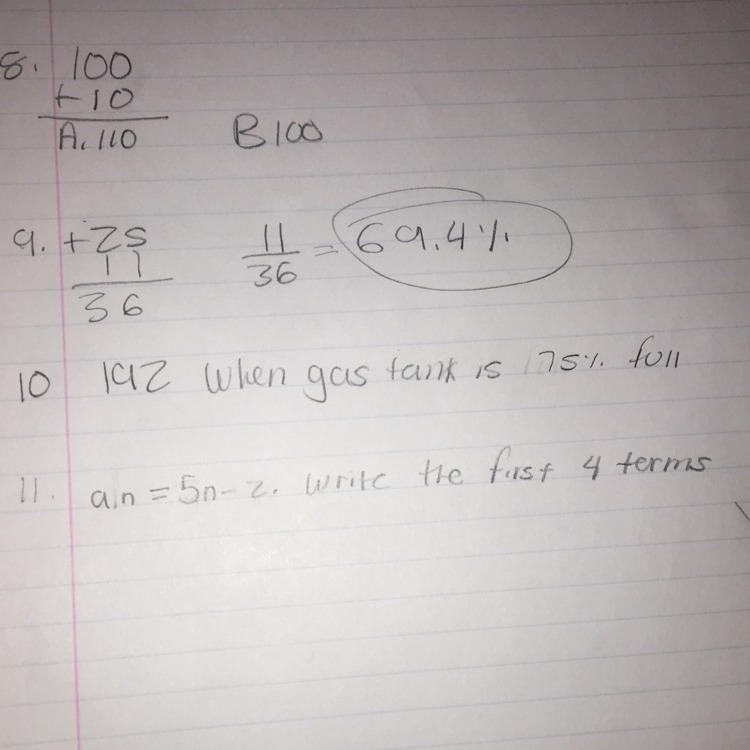 8. 100
+10
A. 110 B 100
9. +25
11
36
11
36 = 69.4%
10 192 When gas tank is 75% full
11. a,n = 5n-2. Write the first 4 terms